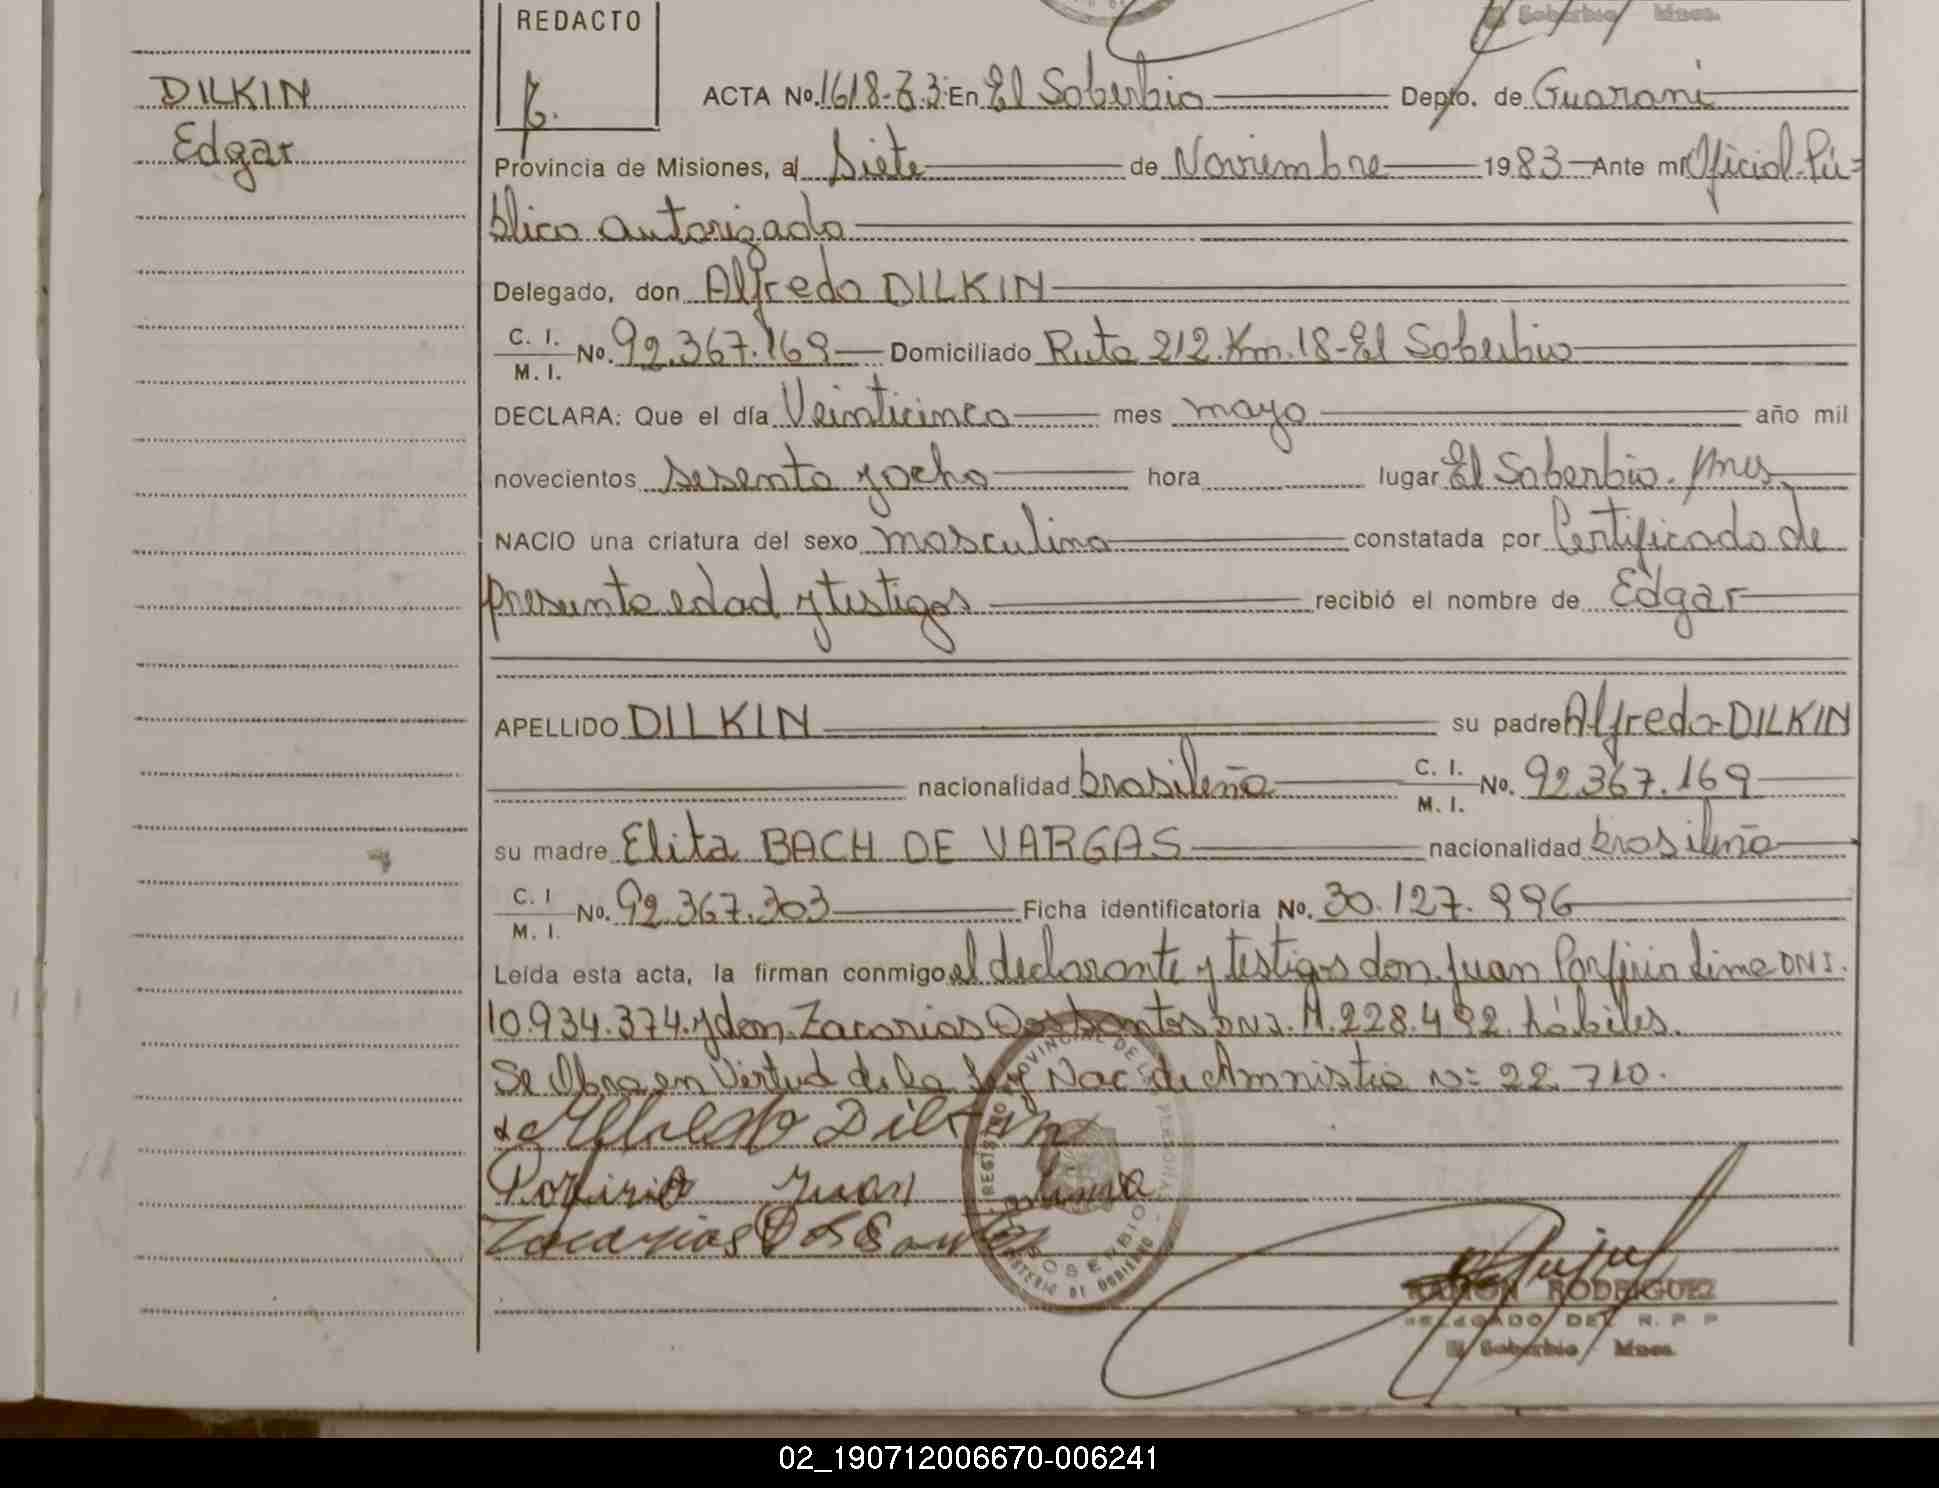 REDACTO
Soberbio Mnes.
DILKIN
Edgar
ACTA No. 1618-Z.3. En El Soberbio Depto. de Guaraní
Provincia de Misiones, al Siete de Noviembre 1983 Ante mi Oficial Pú=
blico autorizado
Delegado, don Alfredo DILKIN
C. I.
M. I. No. 92.367.169 Domiciliado Ruta 212. Km. 18-El Soberbio
DECLARA: Que el día Veinticinco mes mayo año mil
novecientos sesenta y ocho hora lugar El Soberbio. Mnes
NACIO una criatura del sexo masculino constatada por Certificado de
presunta edad y testigos recibió el nombre de Edgar
APELLIDO DILKIN su padre Alfredo DILKIN
nacionalidad brasileña C. I.
M. I. No. 92.367.169
su madre Elita BACH DE VARGAS nacionalidad brasileña
C. I
M. I. No. 92.367.303 Ficha identificatoria No. 30.127.996
Leída esta acta, la firman conmigo el declarante y testigos don Juan Porfirio Lima DNI.
10.934.374. y don Zacarias Dos Santos DNI. M.228.492 hábiles.
Se Obra en Virtud de la Ley Nac. de Amnistia Nº 22.710.
Alfredo Dilkin
Porfirio Juan Lima
Zacarias Dos Santos
REGISTRO PROVINCIAL DE LAS PERSONAS
SOBERBIO
MINISTERIO DE GOBIERNO
RAMON RODRIGUEZ
DELEGADO DEL R. P. P
El Soberbio Mnes.
02_190712006670-006241